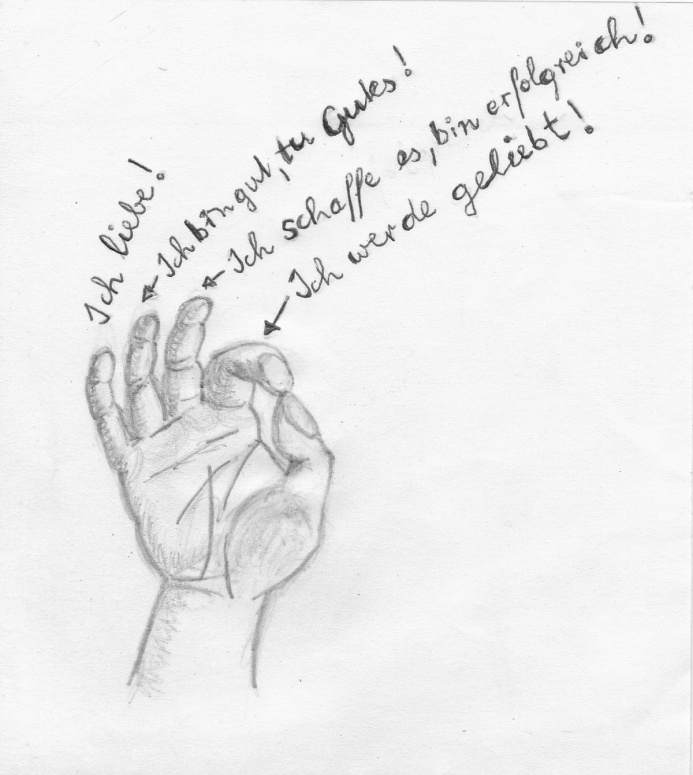 Ich liebe!
Ich bin gut, tu Gutes!
Ich schaffe es, bin erfolgreich!
Ich werde geliebt!